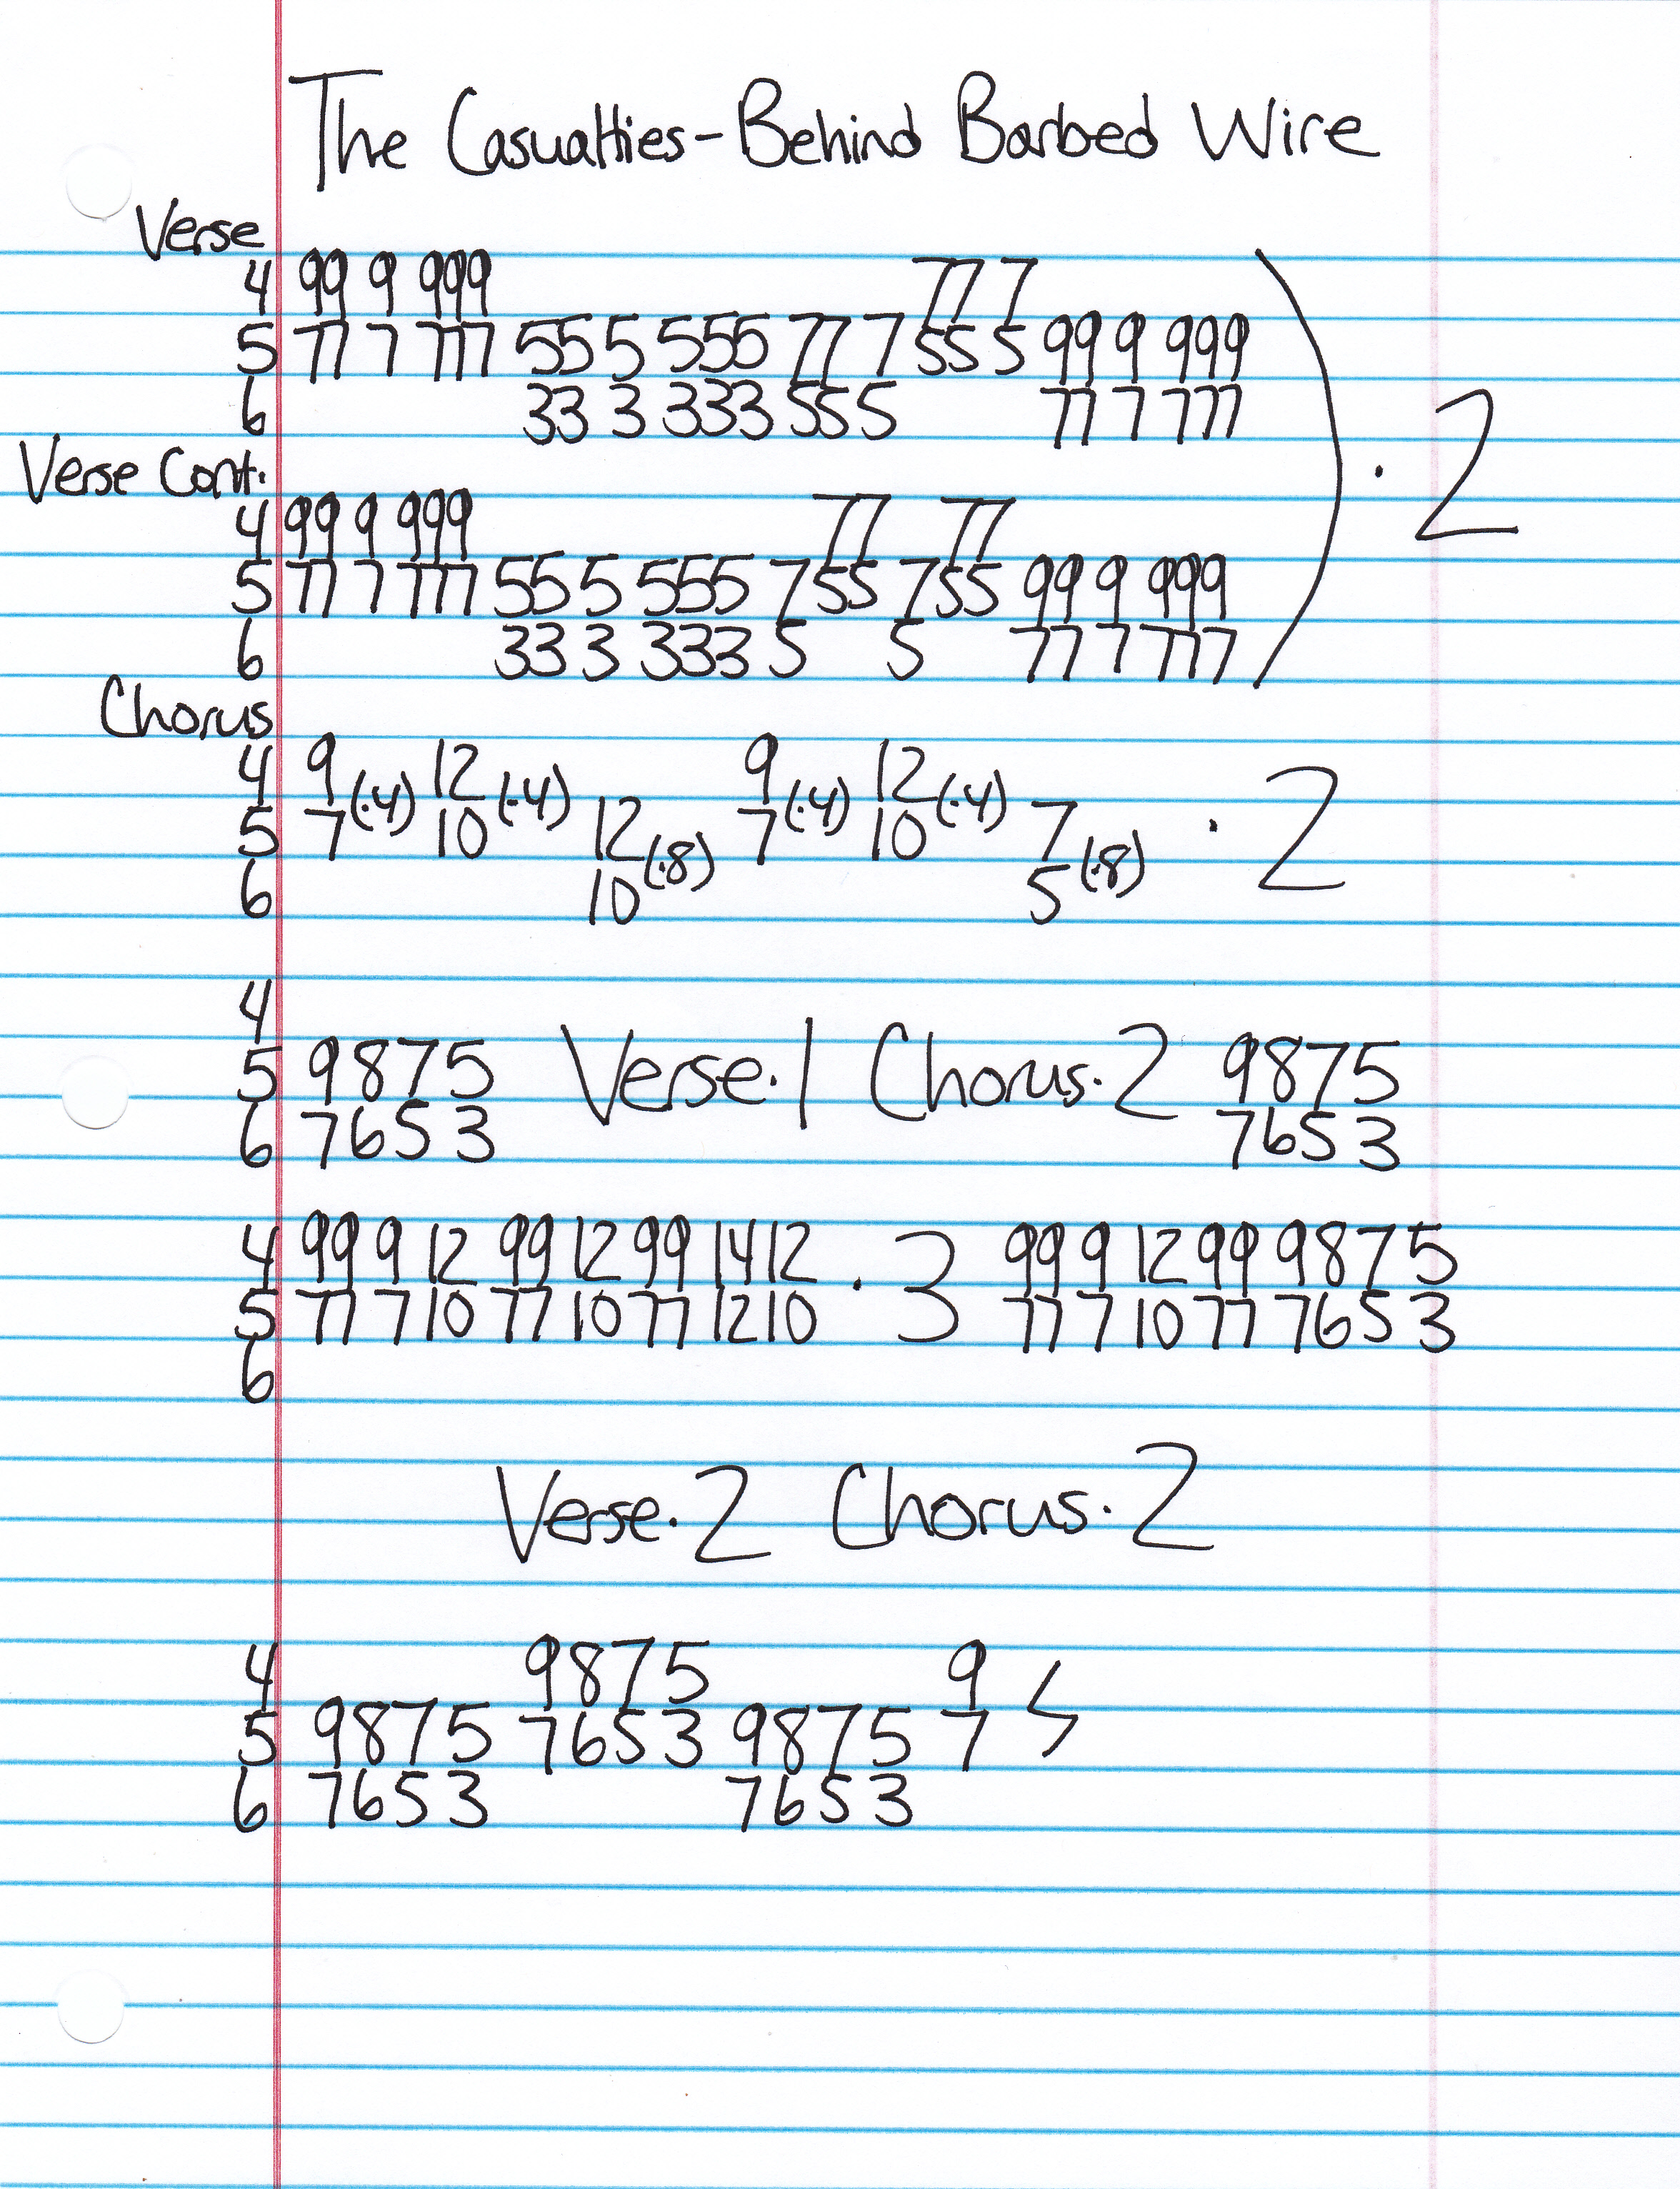 The Casualties-Behind Barbed Wire
Verse
4 99 9 999 77 7
5 77 7 777 55 5 555 77 7 55 5 99 9 999
6 33 3 333 55 5 77 7 777
Verse Cont.
4 99 9 999 77 77
5 77 7 777 55 5 555 7 55 7 55 99 9 999
6 33 3 333 5 5 77 7 777
) · 2
Chorus
4 9 12 9 12
5 7 (·4) 10 (·4) 12 7 (·4) 10 (·4) 7 · 2
6 10 (·8) 5 (·8)
4
5 9875 Verse·1 Chorus·2 9875
6 7653 7653
4 99 9 12 99 12 99 14 12 · 3 99 9 12 99 9875
5 77 7 10 77 10 77 12 10 77 7 10 77 7653
6
Verse·2 Chorus·2
4 9875 9
5 9875 7653 9875 7
6 7653 7653